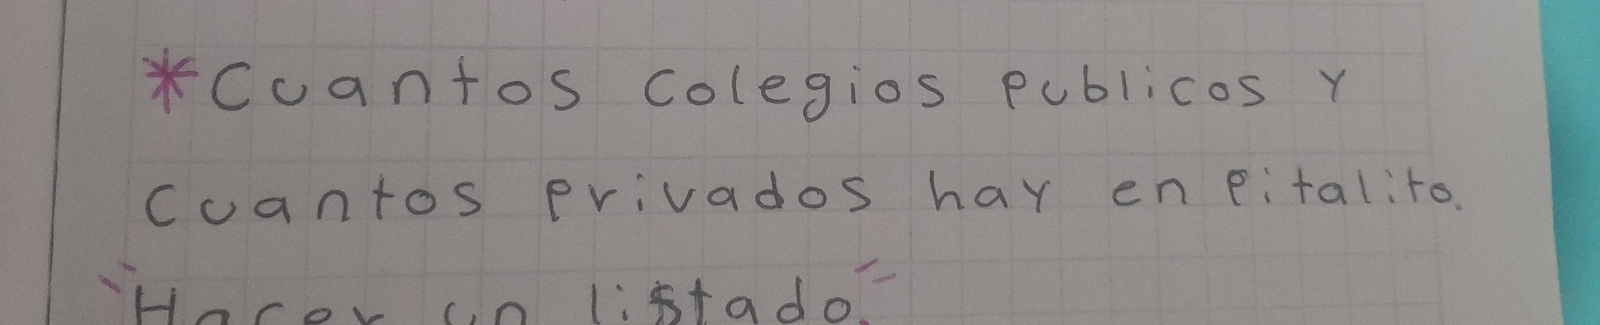 *Cuantos colegios publicos y
cuantos privados hay en Pitalito.
"Hacer un listado."